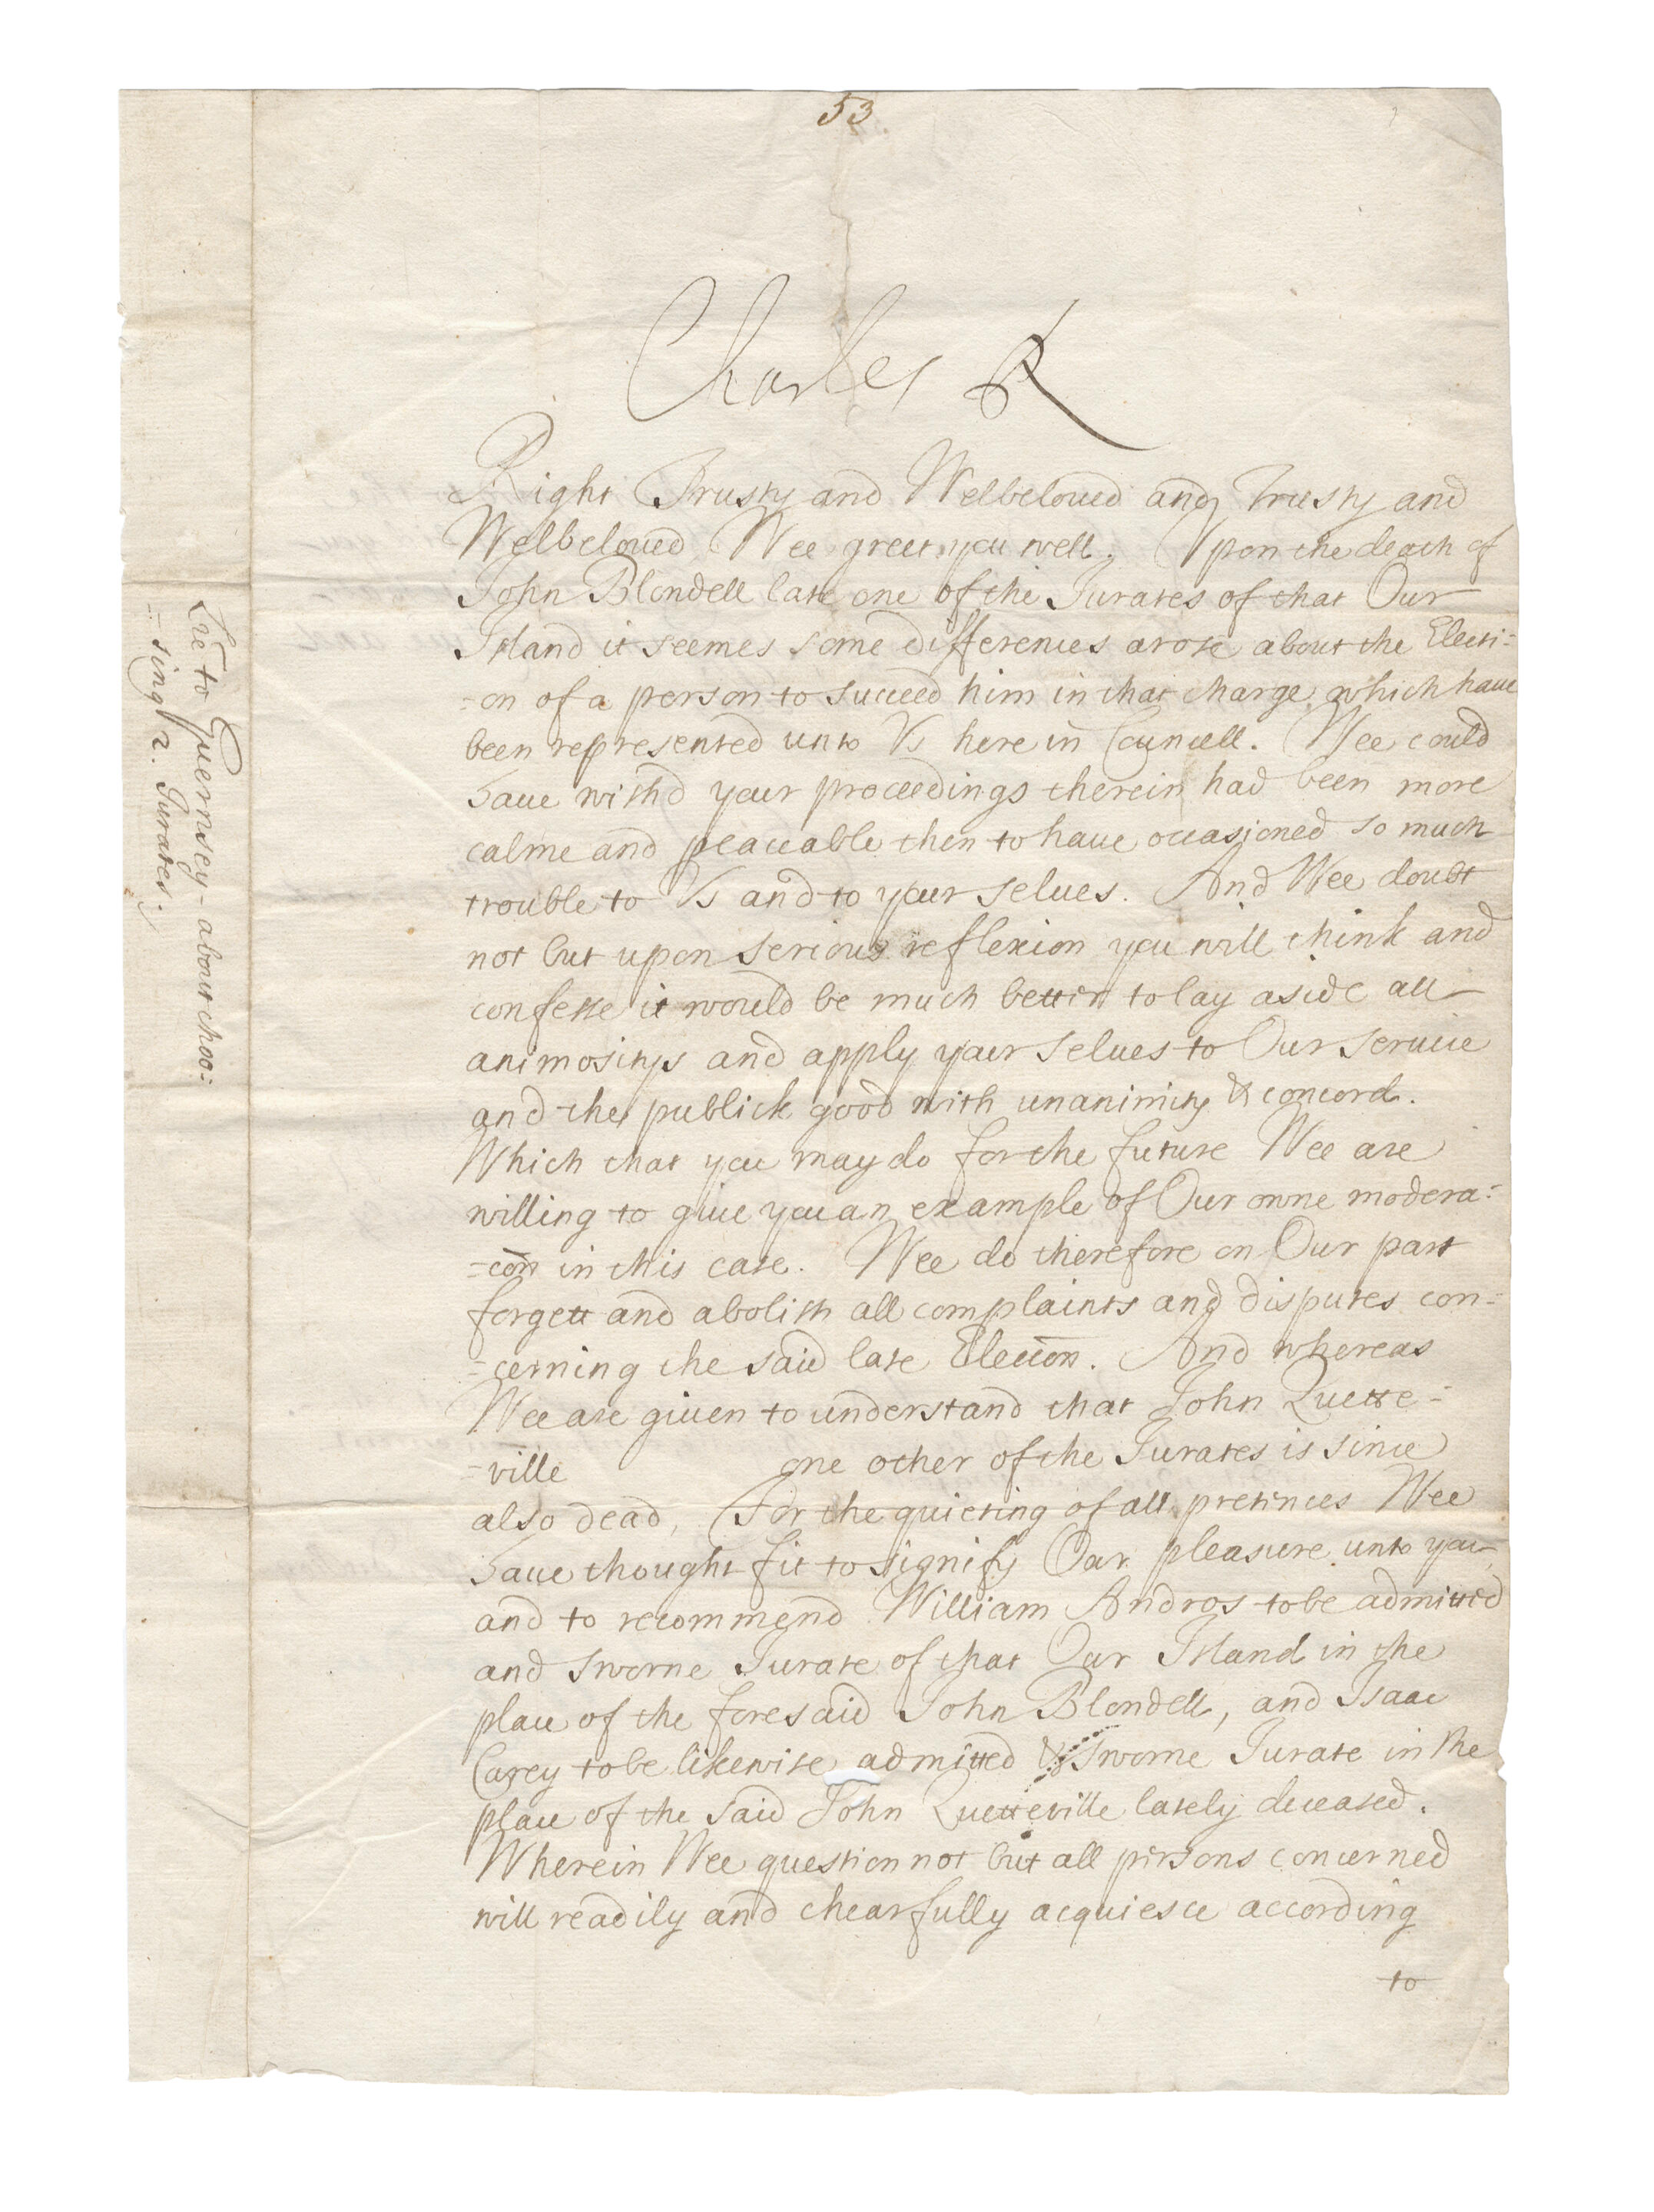 53
Charles R
Right Trusty and Welbeloued and Trusty and
Welbeloued Wee greet you well. Vpon the death of
John Blondell late one of the Jurates of that Our
Island it seemes some differences arose about the Electi=
=on of a person to succeed him in that charge which haue
been represented unto Vs here in Councell. Wee could
haue wishd your proceedings therein had been more
calme and peaceable then to haue occasioned so much
trouble to Vs and to your selues. And Wee doubt
not but upon serious reflexion you will think and
confesse it would be much better to lay aside all
animositys and apply your selues to Our seruice
and the publick good with unanimity & concord.
Which that you may do for the future Wee are
willing to giue you an example of Our owne modera=
=cōn in this case. Wee do therefore on Our part
forgett and abolish all complaints and disputes con=
=cerning the said late Eleccōn. And whereas
Wee are giuen to understand that John Quette=
=ville one other of the Jurates is since
also dead, For the quieting of all pretences Wee
haue thought fit to signify Our pleasure unto you,
and to recommend William Andros to be admitted
and sworne Jurate of that Our Island in the
place of the foresaid John Blondell, and Isaac
Carey to be likewise admitted & sworne Jurate in the
place of the said John Quetteville lately deceased.
Wherein Wee question not but all persons concerned
will readily and chearfully acquiesce according
to
Lr̄e to Guernsey - about choo=
=sing 2. Jurates.